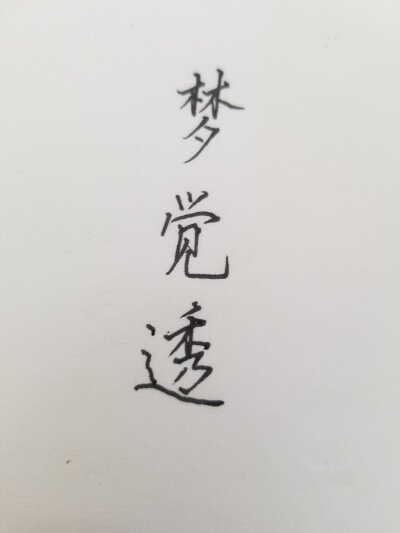 梦觉透